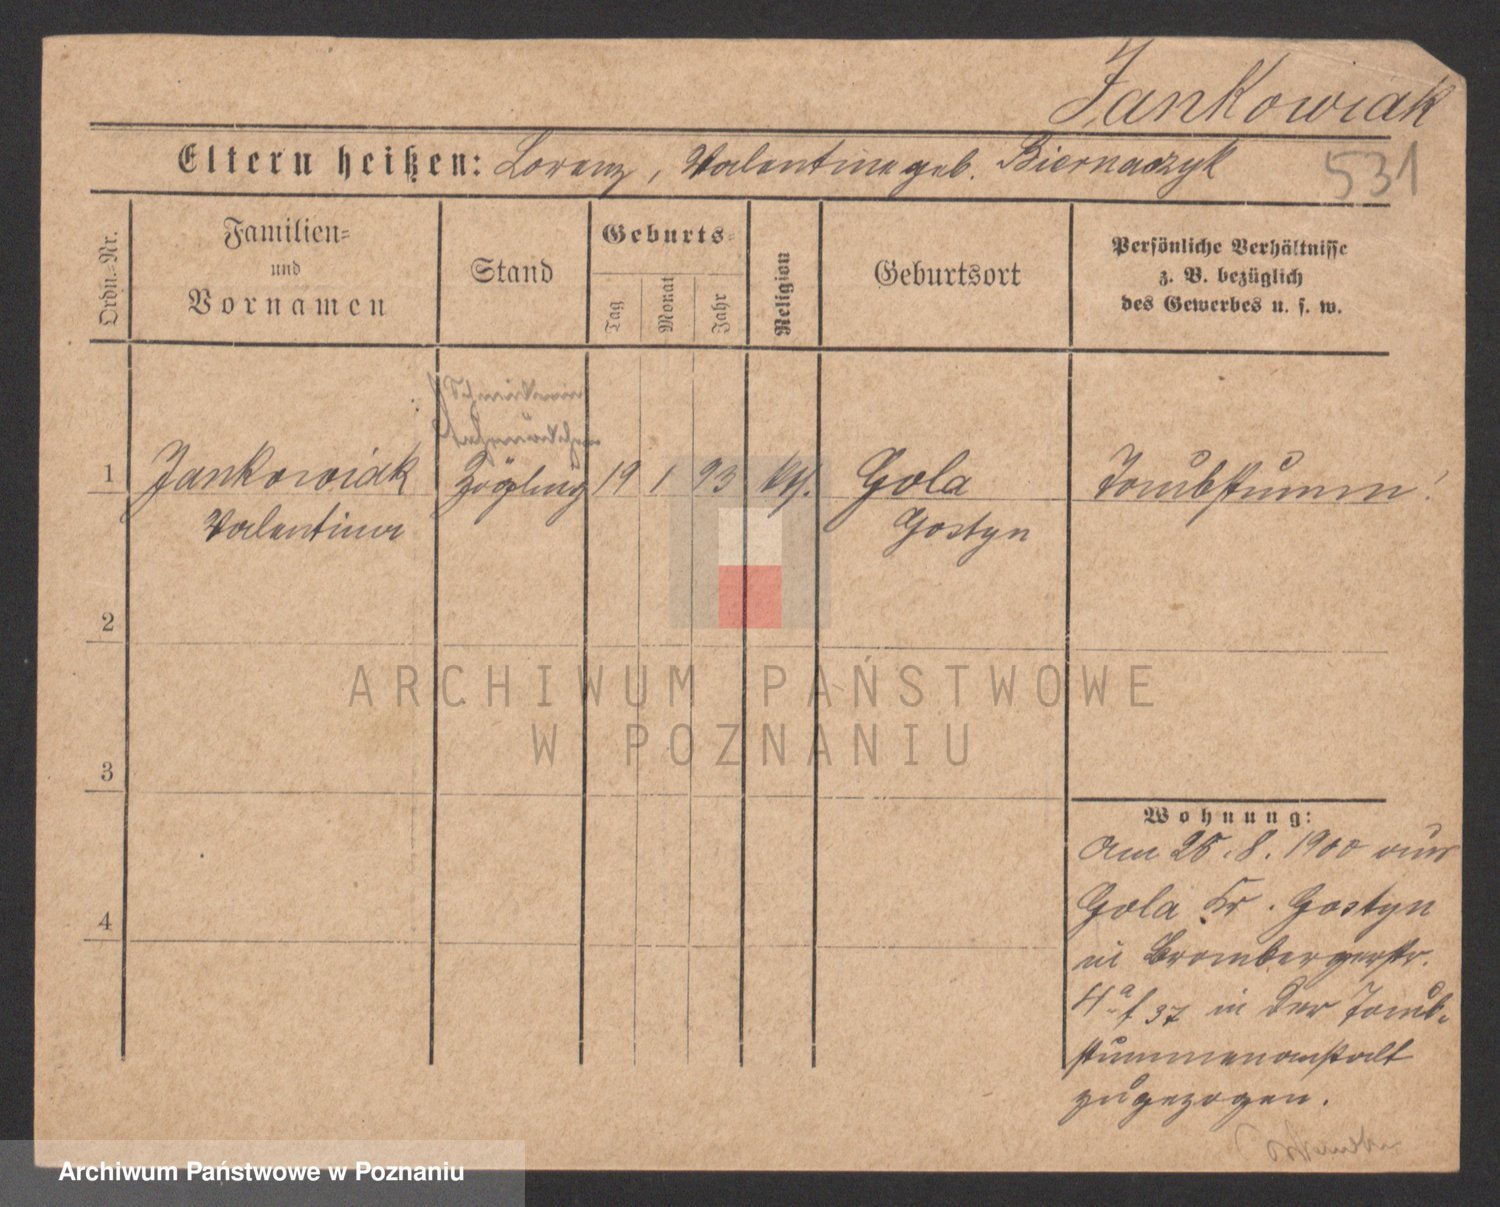 Jankowiak
Eltern heißen: Lorenz, Valentine geb. Biernaczyk
531
Ordn.-Nr.
Familien-
und
Vornamen
Stand
Geburts-
Tag
Monat
Jahr
Religion
Geburtsort
Persönliche Verhältnisse
z. B. bezüglich
des Gewerbes u. s. w.
1 Jankowiak Zögling 19 1 93 kth. Gola Taubstumm!
Valentina Gostyn
2
3
4
Wohnung:
Am 25.8.1900 aus
Gola Kr. Gostyn
in Brombergerstr.
4a/37 in der Taub-
stummenanstalt
zugezogen.
ARCHIWUM PAŃSTWOWE
W POZNANIU
Archiwum Państwowe w Poznaniu